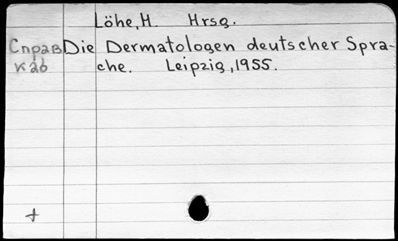 Löhe, H. Hrsg.
Справ Die Dermatologen deutscher Spra-
каб che. Leipzig, 1955.
+